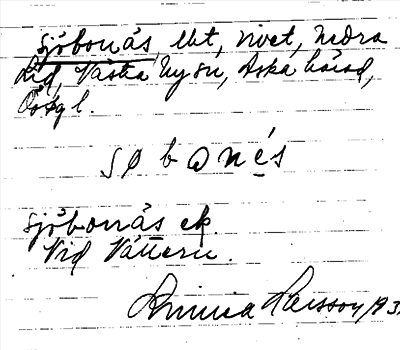 Sjöbonäs, lht, rivet, Nedra
Lid, Västra Ny sn, Aska härad,
Östgl.
sø b ɷ n é s
Sjöbonäs ek.
Vid Vättern.
Linnea Larsson 193